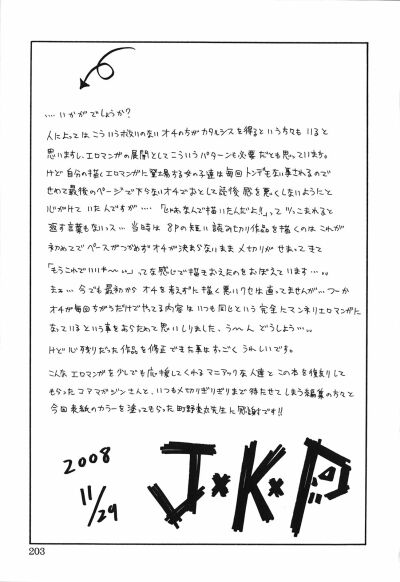 ....いかがでしょうか?
人によってはこういう救いのないオチのちがカタルシスを得るという方々もいると
思いますし、エロマンガの展開としてこういうパターンも必要だとも思っています。
けど自分の描くエロマンガに登場する女の子達は毎回トンデもない事されるので
せめて最後のページで下らないオチでおとして読後感を悪くしないようにと
心がけていたんですが....「じゃあなんで描いたんだよ!」ってツッこまれると
返す言葉もないっス...当時は8Pの短い読み切り作品を描くのはこれが
初めてでペースがつかめずオチが決まらないままメ切りがせまってきて
「もうこれでいいやー」って な感じで描きおえたのをおぼえています...
え...今でも最初からオチを考えずに描く悪いクセは直ってませんが...つーか
オチが毎回ちがうだけでやてる内容はいつも同じという完全にマンネリエロマンガに
なっているという事をあらためて思いしりました、う〜んどうしよう...
けど心残りだった作品を修正できた事はすっごくうれしいです。
こんなエロマンガを少しでも応援してくれるマニアックな人達とこの本を復刊して
もらったコアマガジンさんと、いつもメ切りぎりぎりまで待たせてしまう編集の方々と
今回表紙のカラーを塗ってもらった町野変丸先生に感謝です!!
2008
11/29
J×K×P
203